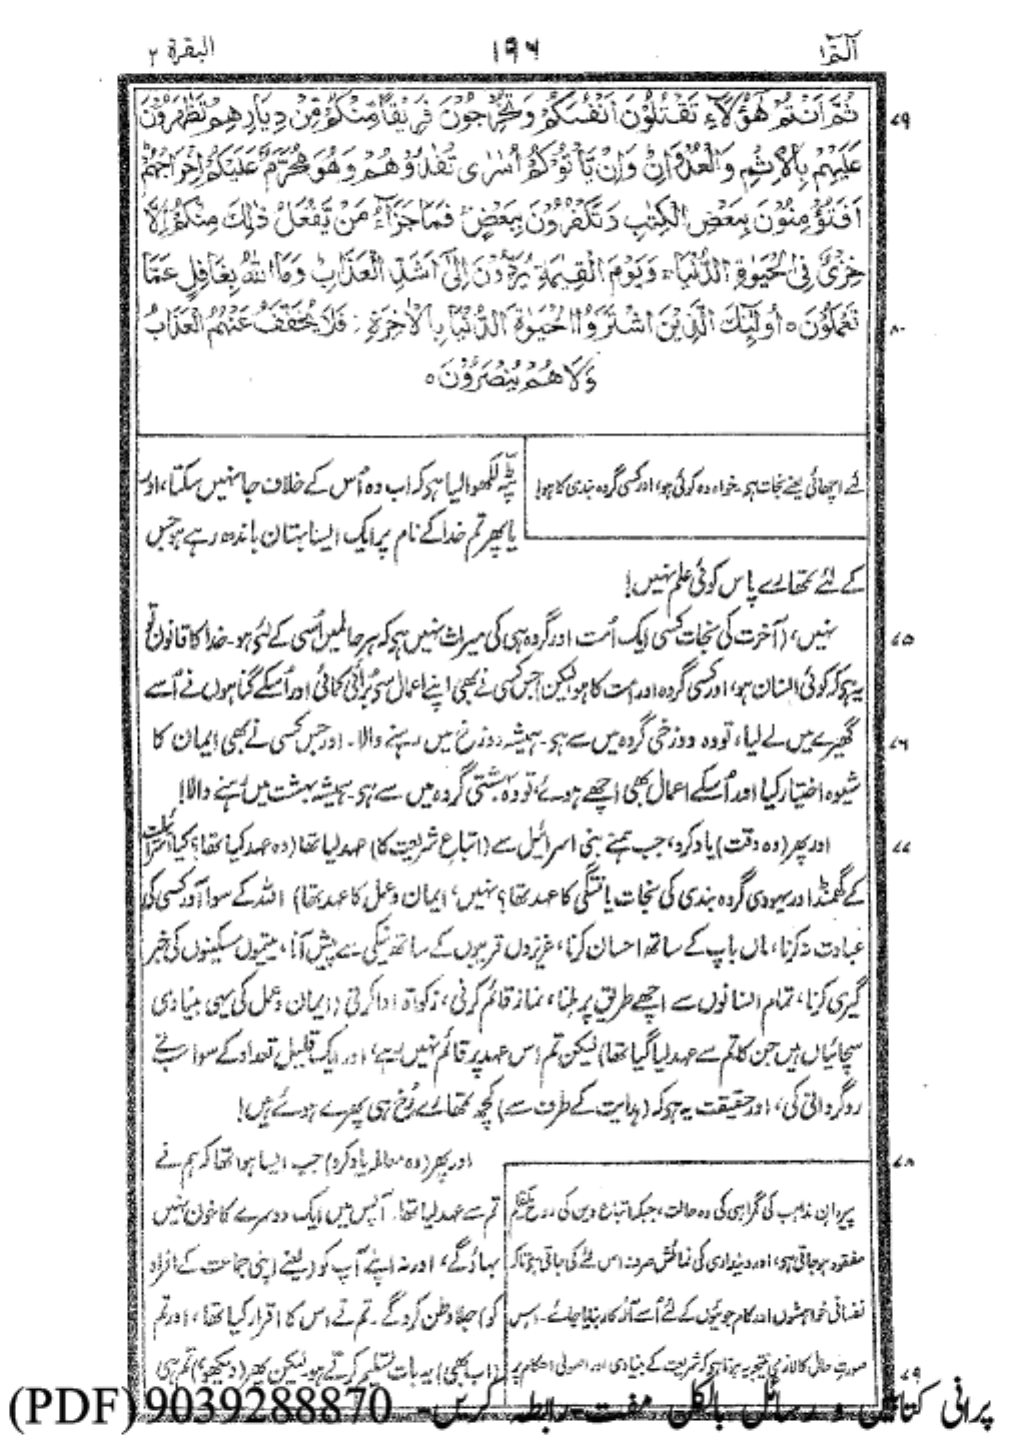 البقرة ٢
١٩٦
الٓمّٓ ١
ثُمَّ اَنْتُمْ هٰٓؤُلَآءِ تَقْتُلُوْنَ اَنْفُسَكُمْ وَتُخْرِجُوْنَ فَرِيْقًا مِّنْكُمْ مِّنْ دِيَارِهِمْ تَظٰهَرُوْنَ
٧٩
عَلَيْهِمْ بِالْاِثْمِ وَالْعُدْوَانِ وَاِنْ يَّاْتُوْكُمْ اُسٰرٰى تُفٰدُوْهُمْ وَهُوَ مُحَرَّمٌ عَلَيْكُمْ اِخْرَاجُهُمْ
اَفَتُؤْمِنُوْنَ بِبَعْضِ الْكِتٰبِ وَتَكْفُرُوْنَ بِبَعْضٍ فَمَا جَزَآءُ مَنْ يَّفْعَلُ ذٰلِكَ مِنْكُمْ اِلَّا
خِزْيٌ فِى الْحَيٰوةِ الدُّنْيَا وَيَوْمَ الْقِيٰمَةِ يُرَدُّوْنَ اِلٰٓى اَشَدِّ الْعَذَابِ وَمَا اللّٰهُ بِغَافِلٍ عَمَّا
تَعْمَلُوْنَ ٥ اُولٰٓئِكَ الَّذِيْنَ اشْتَرَوُا الْحَيٰوةَ الدُّنْيَا بِالْاٰخِرَةِ فَلَا يُخَفَّفُ عَنْهُمُ الْعَذَابُ
٨٠
وَلَا هُمْ يُنْصَرُوْنَ ٥
لئے اچھائی یعنے نجات ہی۔ خواہ وہ کوئی ہو، اور کسی گروہ بندی کا ہو!
پٹّہ لکھوا لیا ہی کہ اب وہ اُس کے خلاف جا نہیں سکتا، اور
یا پھر تم خدا کے نام پر ایک ایسا بہتان باندھ رہے ہو جس
کے لئے تمھارے پاس کوئی علم نہیں!
نہیں، (آخرت کی نجات کسی ایک اُمت اور گروہ ہی کی میراث نہیں ہی کہ ہر حال میں اُسی کے لئے ہو۔ خدا کا قانون تو
٧٥
یہ ہی کہ کوئی انسان ہو، اور کسی گروہ اور اُمت کا ہو لیکن) جس کسی نے بھی اپنے اعمال سے بُرائی کمائی اور اُسکے گناہوں نے اُسے
گھیرے میں لے لیا، تو وہ دوزخی گروہ میں سے ہی۔ ہمیشہ دوزخ میں رہنے والا۔ اور جس کسی نے بھی ایمان کا
٧٦
شیوہ اختیار کیا اور اُسکے اعمال بھی اچھے ہوئے، تو وہ بہشتی گروہ میں سے ہی۔ ہمیشہ بہشت میں رہنے والا!
اور پھر (وہ وقت) یاد کرو، جب ہمنے بنی اسرائیل سے (اتباع شریعت کا) عہد لیا تھا (وہ عہد کیا تھا؟ کیا اسرائیلیت
٧٧
کے گھمنڈ اور یہودی گروہ بندی کی نجات یافتگی کا عہد تھا؟ نہیں، ایمان و عمل کا عہد تھا) اللہ کے سوا اَور کسی کی
عبادت نہ کرنا، ماں باپ کے ساتھ احسان کرنا، عزیزوں قریبوں کے ساتھ نیکی سے پیش آنا، یتیموں مسکینوں کی خبر
گیری کرنا، تمام انسانوں سے اچھے طریق پر ملنا، نماز قائم کرنی، زکوٰۃ ادا کرنی (ایمان و عمل کی یہی بنیادی
سچائیاں ہیں جن کا تم سے عہد لیا گیا تھا) لیکن تم اس عہد پر قائم نہیں رہے، اور ایک قلیل تعداد کے سوا سب نے
روگردانی کی، اور حقیقت یہ ہی کہ (ہدایت کے طرف سے) کچھ تمھارے رُخ ہی پھرے ہوئے ہیں!
اور پھر (وہ معاملہ یاد کرو) جب ایسا ہوا تھا کہ ہم نے
٧٨
تم سے عہد لیا تھا۔ آپس میں ایک دوسرے کا خون نہیں
بہاؤ گے، اور نہ اپنے آپ کو (یعنے اپنی جماعت کے افراد
کو) جلا وطن کرو گے۔ تم نے اس کا اقرار کیا تھا، اور تم
(اب بھی) یہ بات تسلیم کرتے ہو۔ لیکن پھر (دیکھو) تم ہی
پیروانِ مذاہب کی گمراہی کی وہ حالت، جبکہ اتباع دین کی روح یکقلم
مفقود ہو جاتی ہی، اور دینداری کی نمائش صرف اس لئے کی جاتی ہی تاکہ
نفسانی خواہشوں اور کام جوئیوں کے لئے اُسے آلۂ کار بنایا جائے۔ اس
صورتِ حال کا لازمی نتیجہ یہ ہوتا ہی کہ شریعت کے بنیادی اور اصولی احکام پر
٧٩
پرانی کتابیں و رسائل بالکل مفت رابطہ کریں۔ 9039288870 (PDF)